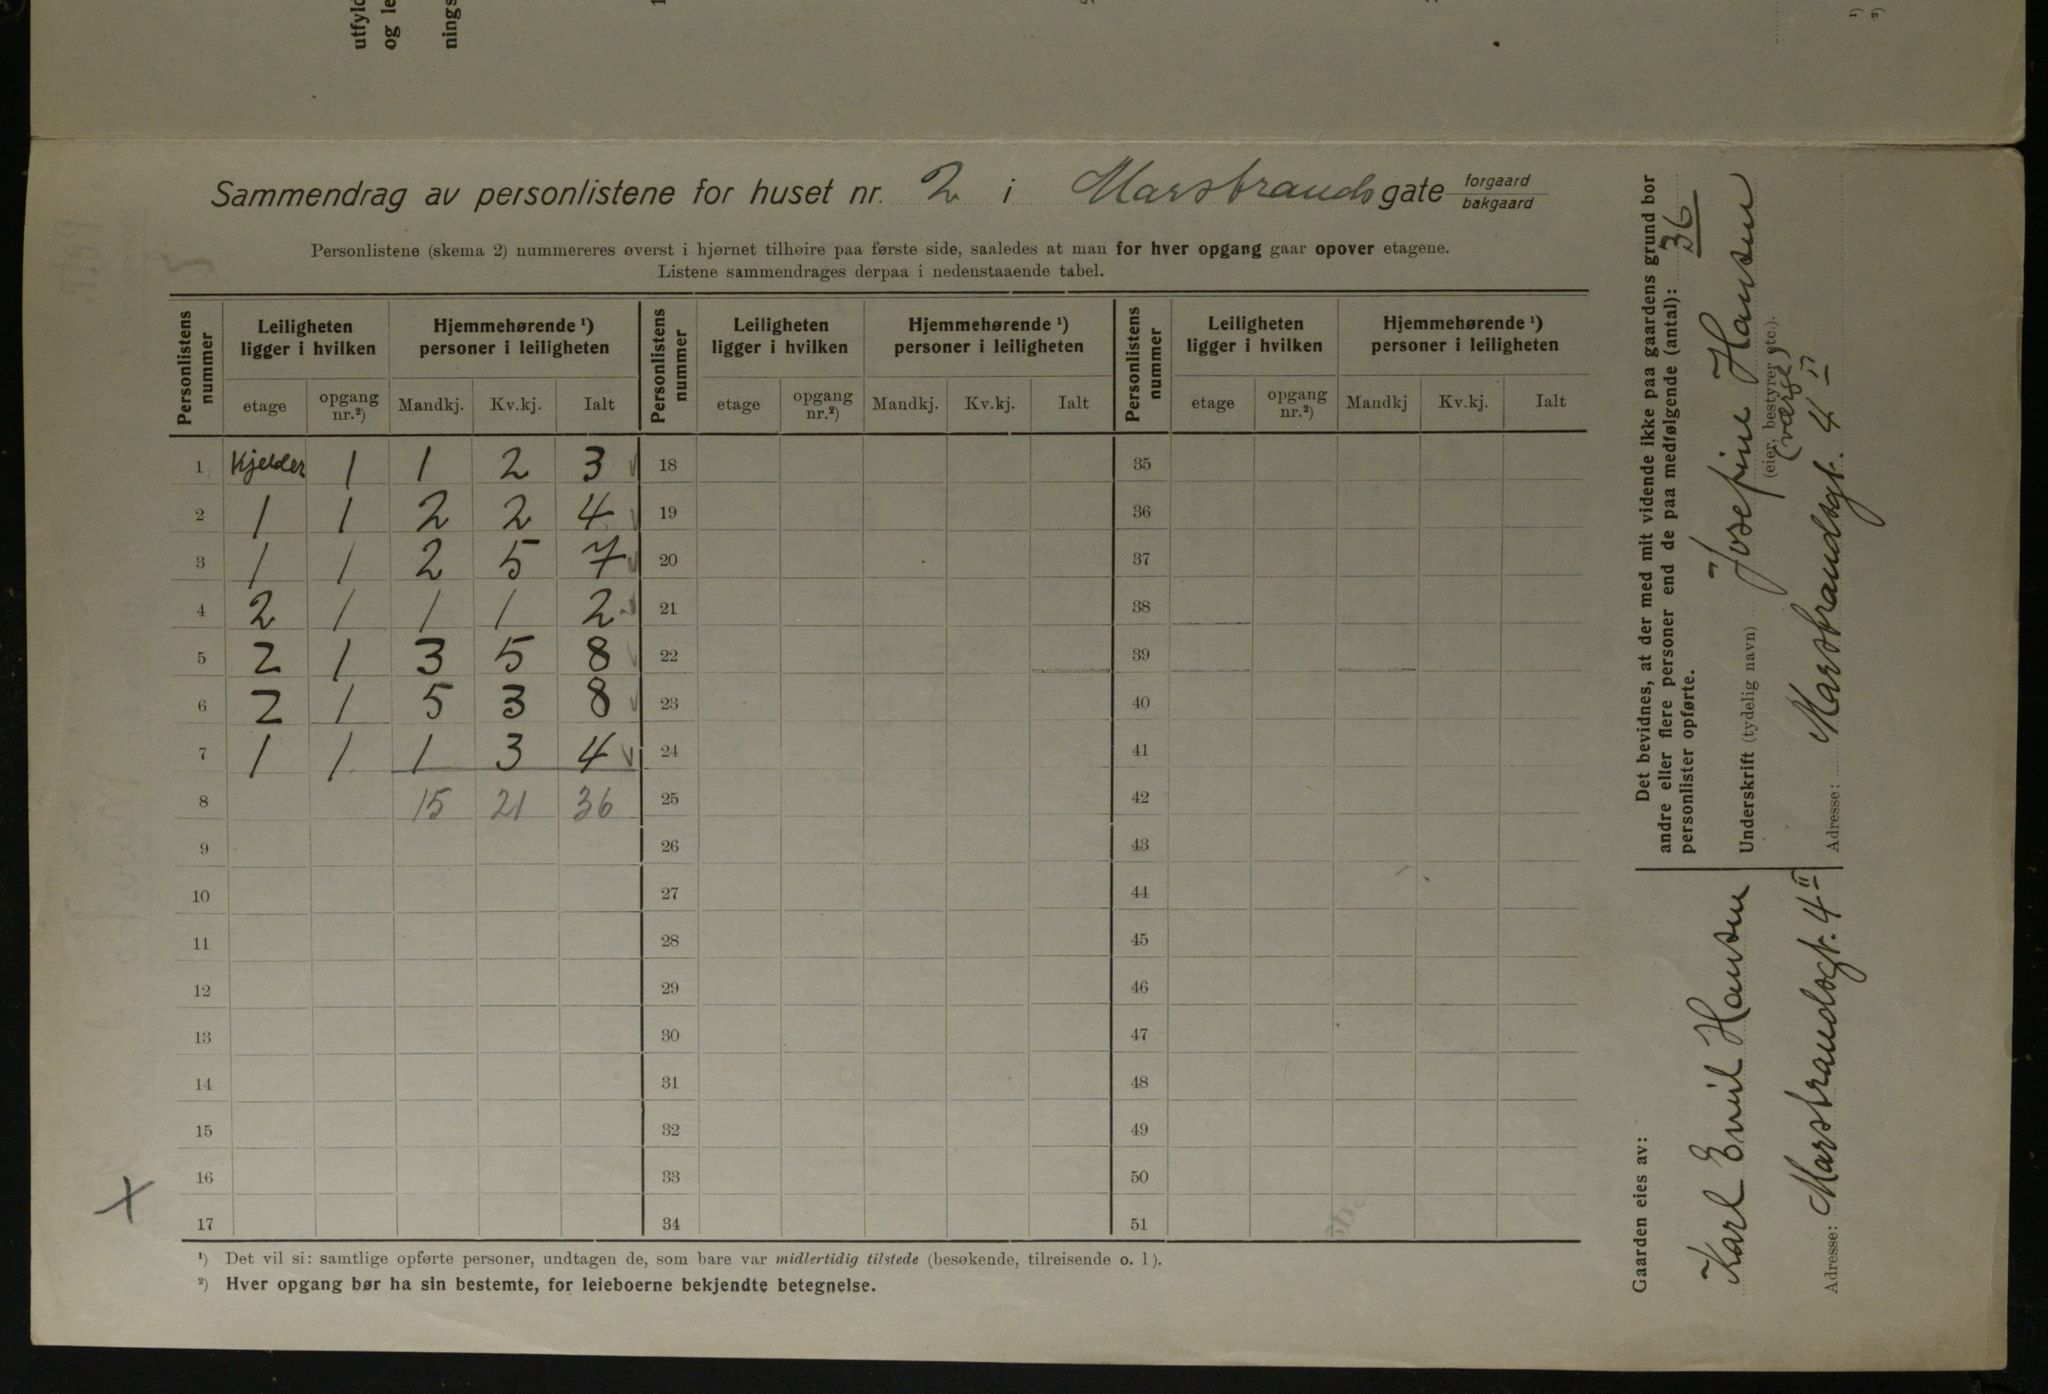 utfyld
og le
nings
¹)
²)
Sammendrag av personlistene for huset nr. 2 i Marsbrands gate forgaard bakgaard
Personlistene (skema 2) nummereres øverst i hjørnet tilhøire paa første side, saaledes at man for hver opgang gaar opover etagene.
Listene sammendrages derpaa i nedenstaaende tabel.
Personlistens nummer | Leiligheten ligger i hvilken | Hjemmehørende ¹) personer i leiligheten | Personlistens nummer | Leiligheten ligger i hvilken | Hjemmehørende ¹) personer i leiligheten | Personlistens nummer | Leiligheten ligger i hvilken | Hjemmehørende ¹) personer i leiligheten
etage | opgang nr.²) | Mandkj. | Kv.kj. | Ialt | etage | opgang nr.²) | Mandkj. | Kv.kj. | Ialt | etage | opgang nr.²) | Mandkj | Kv.kj. | Ialt
1 Kjelder 1 1 2 3 18 35
2 1 1 2 2 4 19 36
3 1 1 2 5 7 20 37
4 2 1 1 1 2 21 38
5 2 1 3 5 8 22 39
6 2 1 5 3 8 23 40
7 1 1 1 3 4 24 41
8 15 21 36 25 42
9 26 43
10 27 44
11 28 45
12 29 46
13 30 47
14 31 48
15 32 49
16 33 50
17 34 51
¹) Det vil si: samtlige opførte personer, undtagen de, som bare var midlertidig tilstede (besøkende, tilreisende o. l).
²) Hver opgang bør ha sin bestemte, for leieboerne bekjendte betegnelse.
Det bevidnes, at der med mit vidende ikke paa gaardens grund bor
andre eller flere personer end de paa medfølgende (antal): 36
personlister opførte.
Underskrift (tydelig navn) Josefine Hansen
(eier, bestyrer etc.).
(værge)
Adresse: Marstrandsgt. 4 II
Gaarden eies av:
Karl Emil Hansen
Adresse: Marstrandsgt. 4 II
X